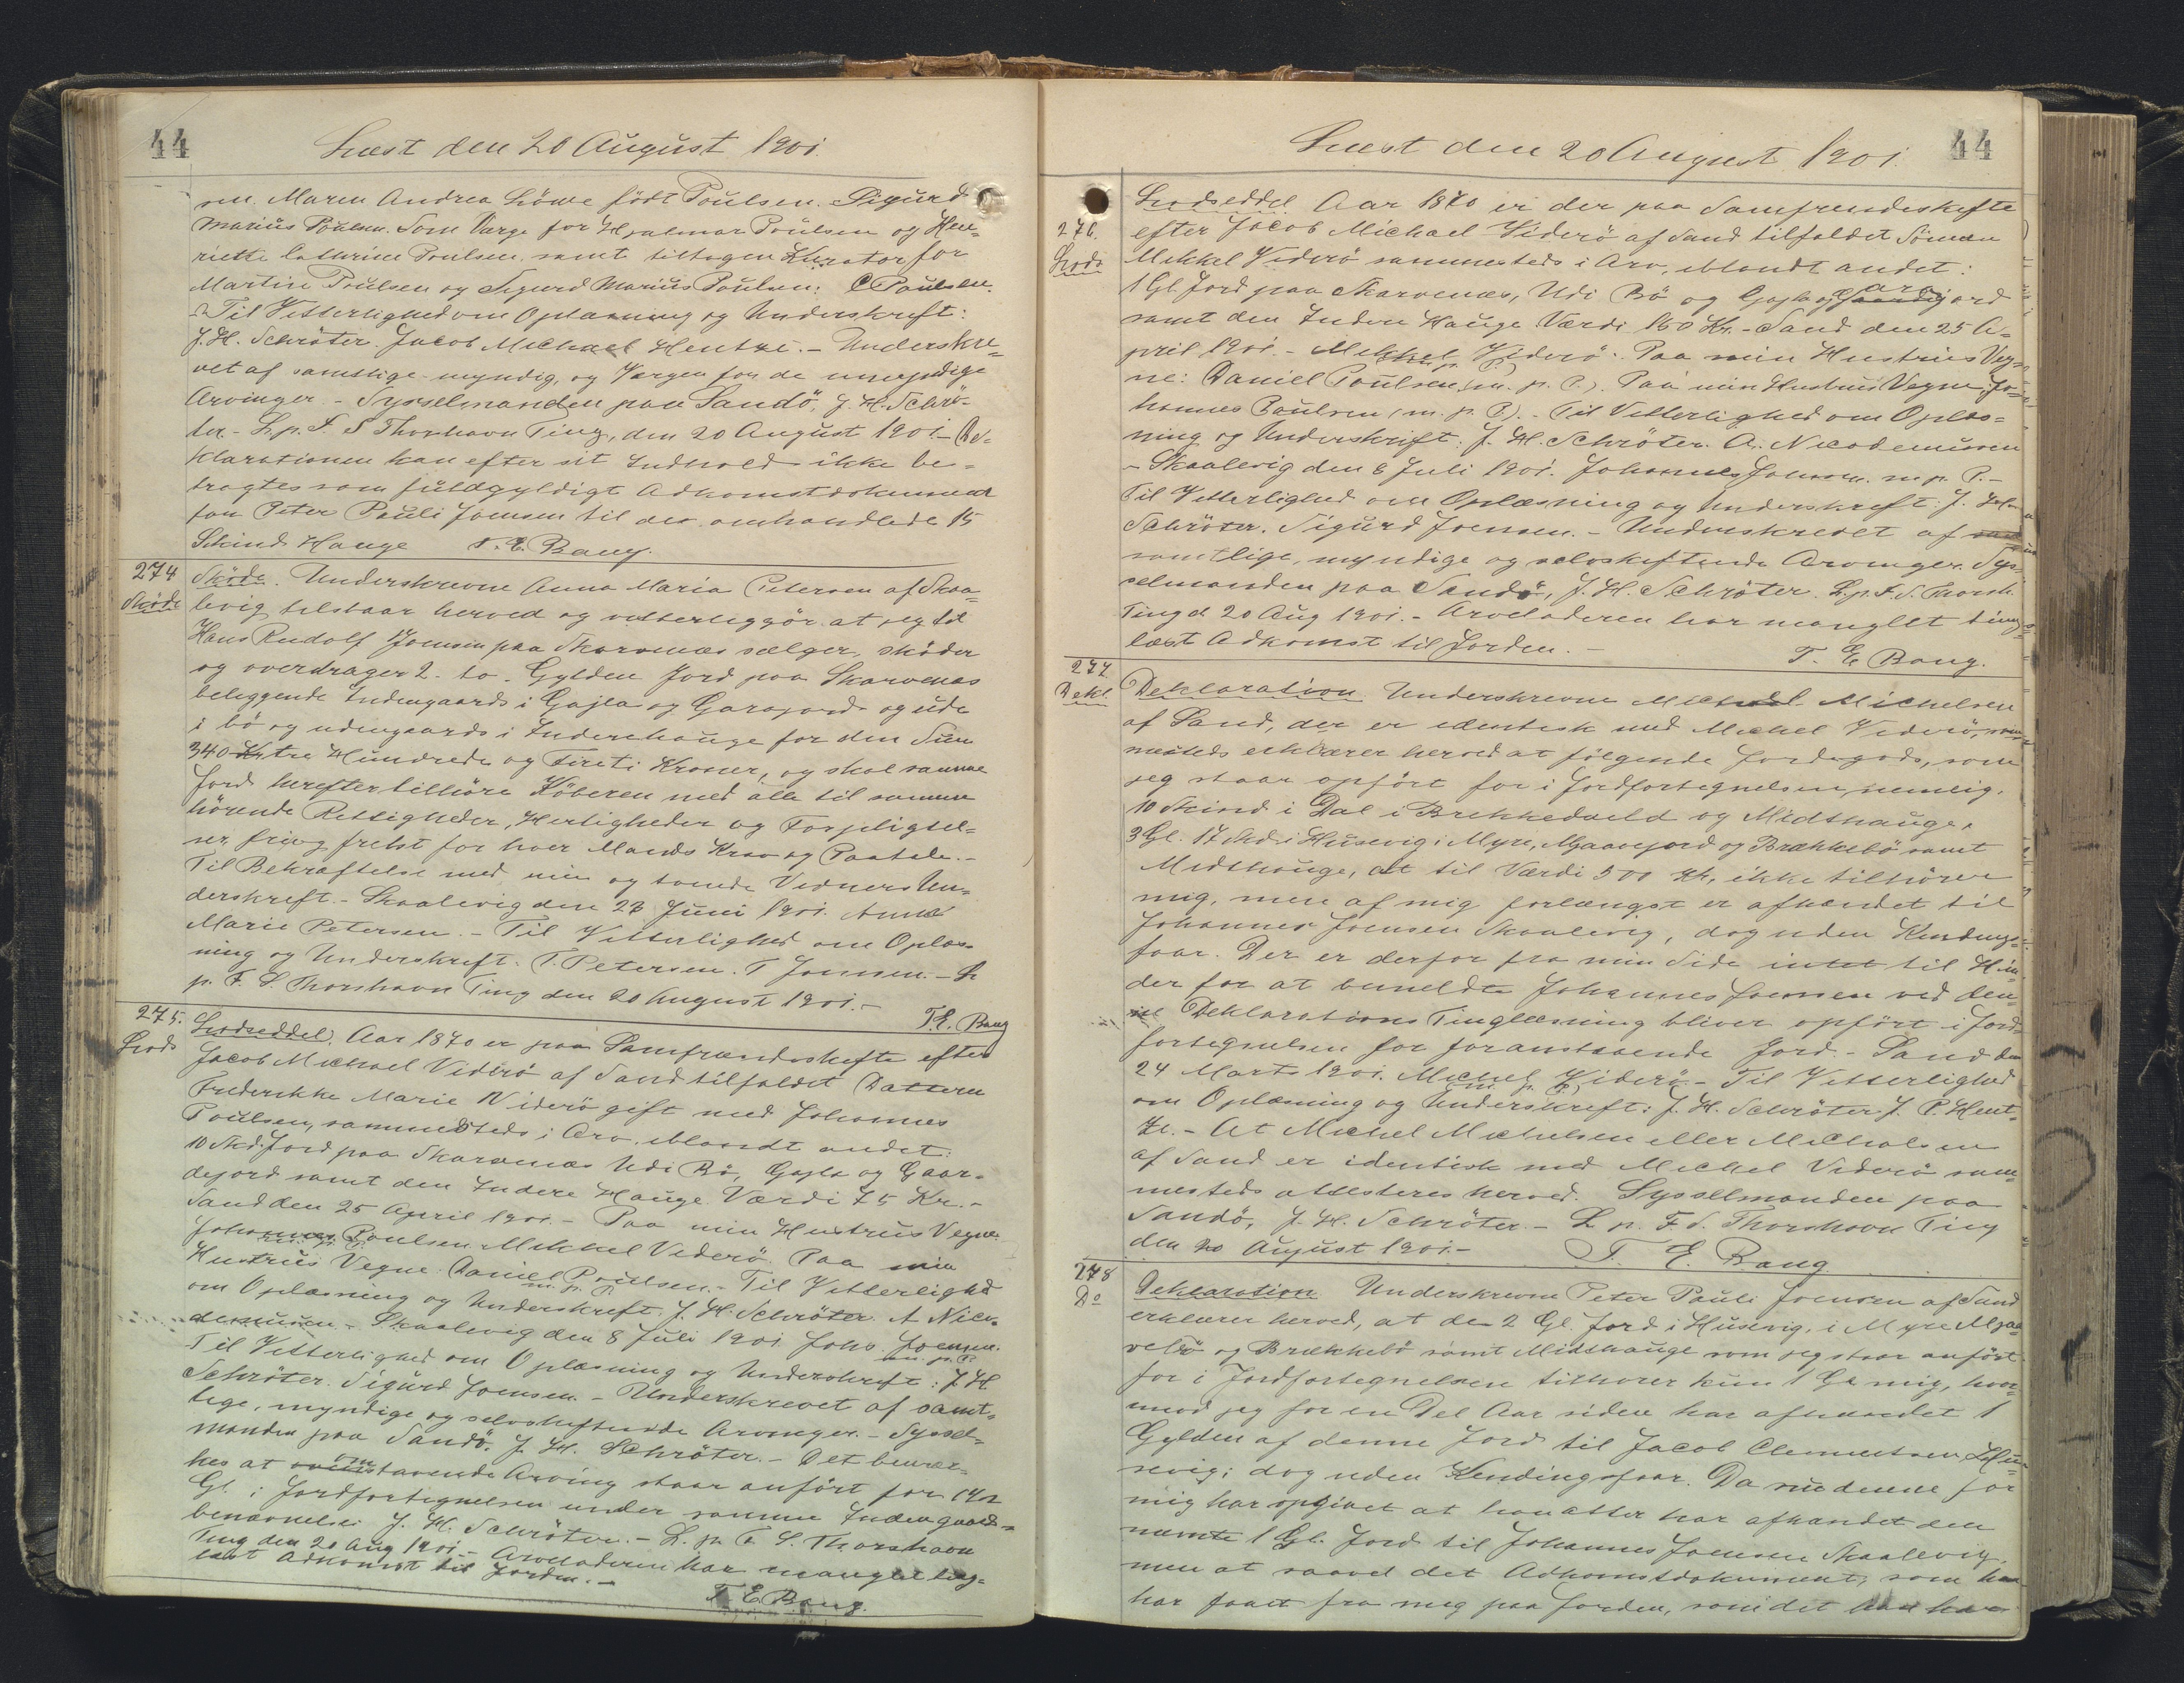 44
Læst den 20 August 1901.
sen. Maren Andrea Löwe født Poulsen. Sigurd
Marius Poulsen. Som Værge for Hjalmar Poulsen og Hen-
riette Cathrine Poulsen samt tiltagen Kurator for
Martin Poulsen og Sigurd Marius Poulsen: C Paulsen.
Til Vitterlighed om Oplæsning og Underskrift:
J. H. Schröter. Jacob Michael Hentze. - Underskre-
vet af samtlige myndig, og Værgen for de umyndige
Arvinger. - Sysselmanden paa Sandö, J. H. Schrö-
ter. - L. p. F. S Thorshavn Ting, den 20 August 1901. - De-
klarationen kan efter sit Indhold ikke be-
tragtes som fuldgyldigt Adkomstdokument
for Peter Pauli Joensen til de omhandlede 15
Skind Hauge T. E. Bang.
274
Skøde
Skøde. Underskrevne Anna Maria Petersen af Skaa-
levig tilstaar herved og vitterliggör at jeg til
Hans Rudolf Joensen paa Skarvenæs sælger, skøder
og overdrager 2 - to - Gylden Jord paa Skarvenæs
beliggende Indengaards i Gajla og Garajord og ude
i bø og udengaards i Inderehauge for den Sum
340 Kr tre Hundrede og Fireti Kroner, og skal samme
Jord herefter tilhöre Köberen med alle til samme
hörende Rettigheder, Herligheder og Forpligtel-
ser, fri og frelst for hver Mands Krav og Paatale. -
Til Bekræftelse med min og tvende Vidners Un-
derskrift. - Skaalevig den 23 Juni 1901. Anna
Marie Petersen. - Til Vitterlighed om Oplæs-
ning og Underskrift. P. Petersen. T Joensen. - L
p. F. S Thorshavn Ting den 20 August 1901. -
T. E. Bang
275.
Lods
Lodseddel. Aar 1870 er paa Samfrændeskifte efter
Jacob Michael Viderö af Sand tilfaldet Datteren
Frederikke Marie Viderö gift med Johannes
Poulsen, sammesteds i Arv, iblandt andet:
10 Skd. Jord paa Skarvenæs Udi Bø, Gajla og Gaar-
dejord samt den Indere Hauge. Værdi 75 Kr. -
Sand den 25 April 1901. - Paa min Hustrus Vegne:
Johannes Poulsen. Mikkel Viderö. Paa min
m. p. P.
Hustrus Vegne Daniel Poulsen. - Til Vitterlighed
m. p. P.
om Oplæsning og Underskrift. J. H. Schröter. A Nico-
demusen. - Skaalevig den 8 Juli 1901 Johs. Joensen.
m. p. P.
Til Vitterlighed om Oplæsning og Underskrift: J. H
Schröter. Sigurd Joensen. - Underskrevet af samt-
lige, myndige og selvskiftende Arvinger. - Syssel-
manden paa Sandö, J. H. Schröter. - Det bemær-
kes at staaende Arving staar anført for 1 1/2
Gl. i Jordfortegnelsen under samme Indengaards-
benævnelse. J. H. Schröter. - L. p. F. S. Thorshavn
Ting den 20 Aug 1901. - Arveladeren har manglet ting-
læst Adkomst til Jorden. -
T. E. Bang.
44
Læst den 20 August 1901.
276.
Lods
Lodseddel. Aar 1870 er der paa Samfrændeskifte
efter Jacob Michael Viderö af Sand tilfaldet Sönnen
Mikkel Viderö sammesteds i Arv, iblandt andet:
1 Gl. Jord paa Skarvenæs, Udi Bö og Gajla og Garajord
samt den Indere Hauge. Værdi 150 Kr. - Sand den 25 A-
pril 1901. - Mikkel Viderö. Paa min Hustrus Veg-
m. p. P.
ne: Daniel Poulsen (m. p. P.). Paa min Hustrus Vegne, Jo-
hannes Poulsen (m. p. P.). - Til Vitterlighed om Oplæs-
ning og Underskrift: J. H. Schröter. A. Nicodemusen
- Skaalevig den 8 Juli 1901. Johannes Joensen. m. p. P. -
Til Vitterlighed om Oplæsning og Underskrift: J. H.
Schröter. Sigurd Joensen. - Underskrevet af
samtlige, myndige og selvskiftende Arvinger. Sys-
selmanden paa Sandö, J. H. Schröter. L. p. F. S. Thorsh.
Ting d 20 Aug 1901. - Arveladeren har manglet ting-
læst Adkomst til Jorden. -
T. E. Bang.
277
Dekl
Deklaration. Underskrevne Michel Michelsen
af Sand, der er identisk med Michel Viderö, sam-
mesteds erklærer herved at følgende Jordegods, som
jeg staar opført for i Jordfortegnelsen, nemlig.
10 Skind i Dal i Brekkedveld og Midthauge,
3 Gl. 17 Skd. i Husevig i Myre, Mjaavejord og Brækkebö samt
Midthauge, alt til Værdi 500 Kr, ikke tilhörer
mig, men af mig forlængst er afhændet til
Johannes Joensen Skaalevig, dog uden Kendings-
faar. Der er derfor fra min Side intet til Hin-
der for at bemeldte Johannes Joensen ved den-
ne Deklarations Tinglæsning bliver opført i Jord-
fortegnelsen for foranstaaende Jord. - Sand den
24 Marts 1901. Michel Viderö. - Til Vitterlighed
(m. p. P.)
om Oplæsning og Underskrift: J. H. Schröter. J. P. Hent-
ze. - At Michel Michelsen eller Michalsen
af Sand er identisk med Michel Viderö sam-
mesteds attesteres herved. Sysselmanden paa
Sandö, J. H. Schröter. - L. p. F. S. Thorshavn Ting
den 20 August 1901. - T. E. Bang.
278
Do
Deklaration Underskrevne Peter Pauli Joensen af Sand
erklærer herved, at de 2 Gl. Jord i Husevig, i Myre Mjaa-
vebö og Brækkebö samt Midthauge som jeg staar anført
for i Jordfortegnelsen tilhører kun 1 Gl. mig, hvor-
imod jeg for en Del Aar siden har afhændet 1
Gylden af denne Jord til Jacob Clementsen Hu-
sevig; dog uden Kendingsfaar. Da nu denne for
mig har opgivet at han atter har afhændet den
nævnte 1 Gl. Jord til Johannes Joensen Skaalevig,
men at saavel det Adkomstdokument, som han
har faaet fra mig paa Jorden, som det han har